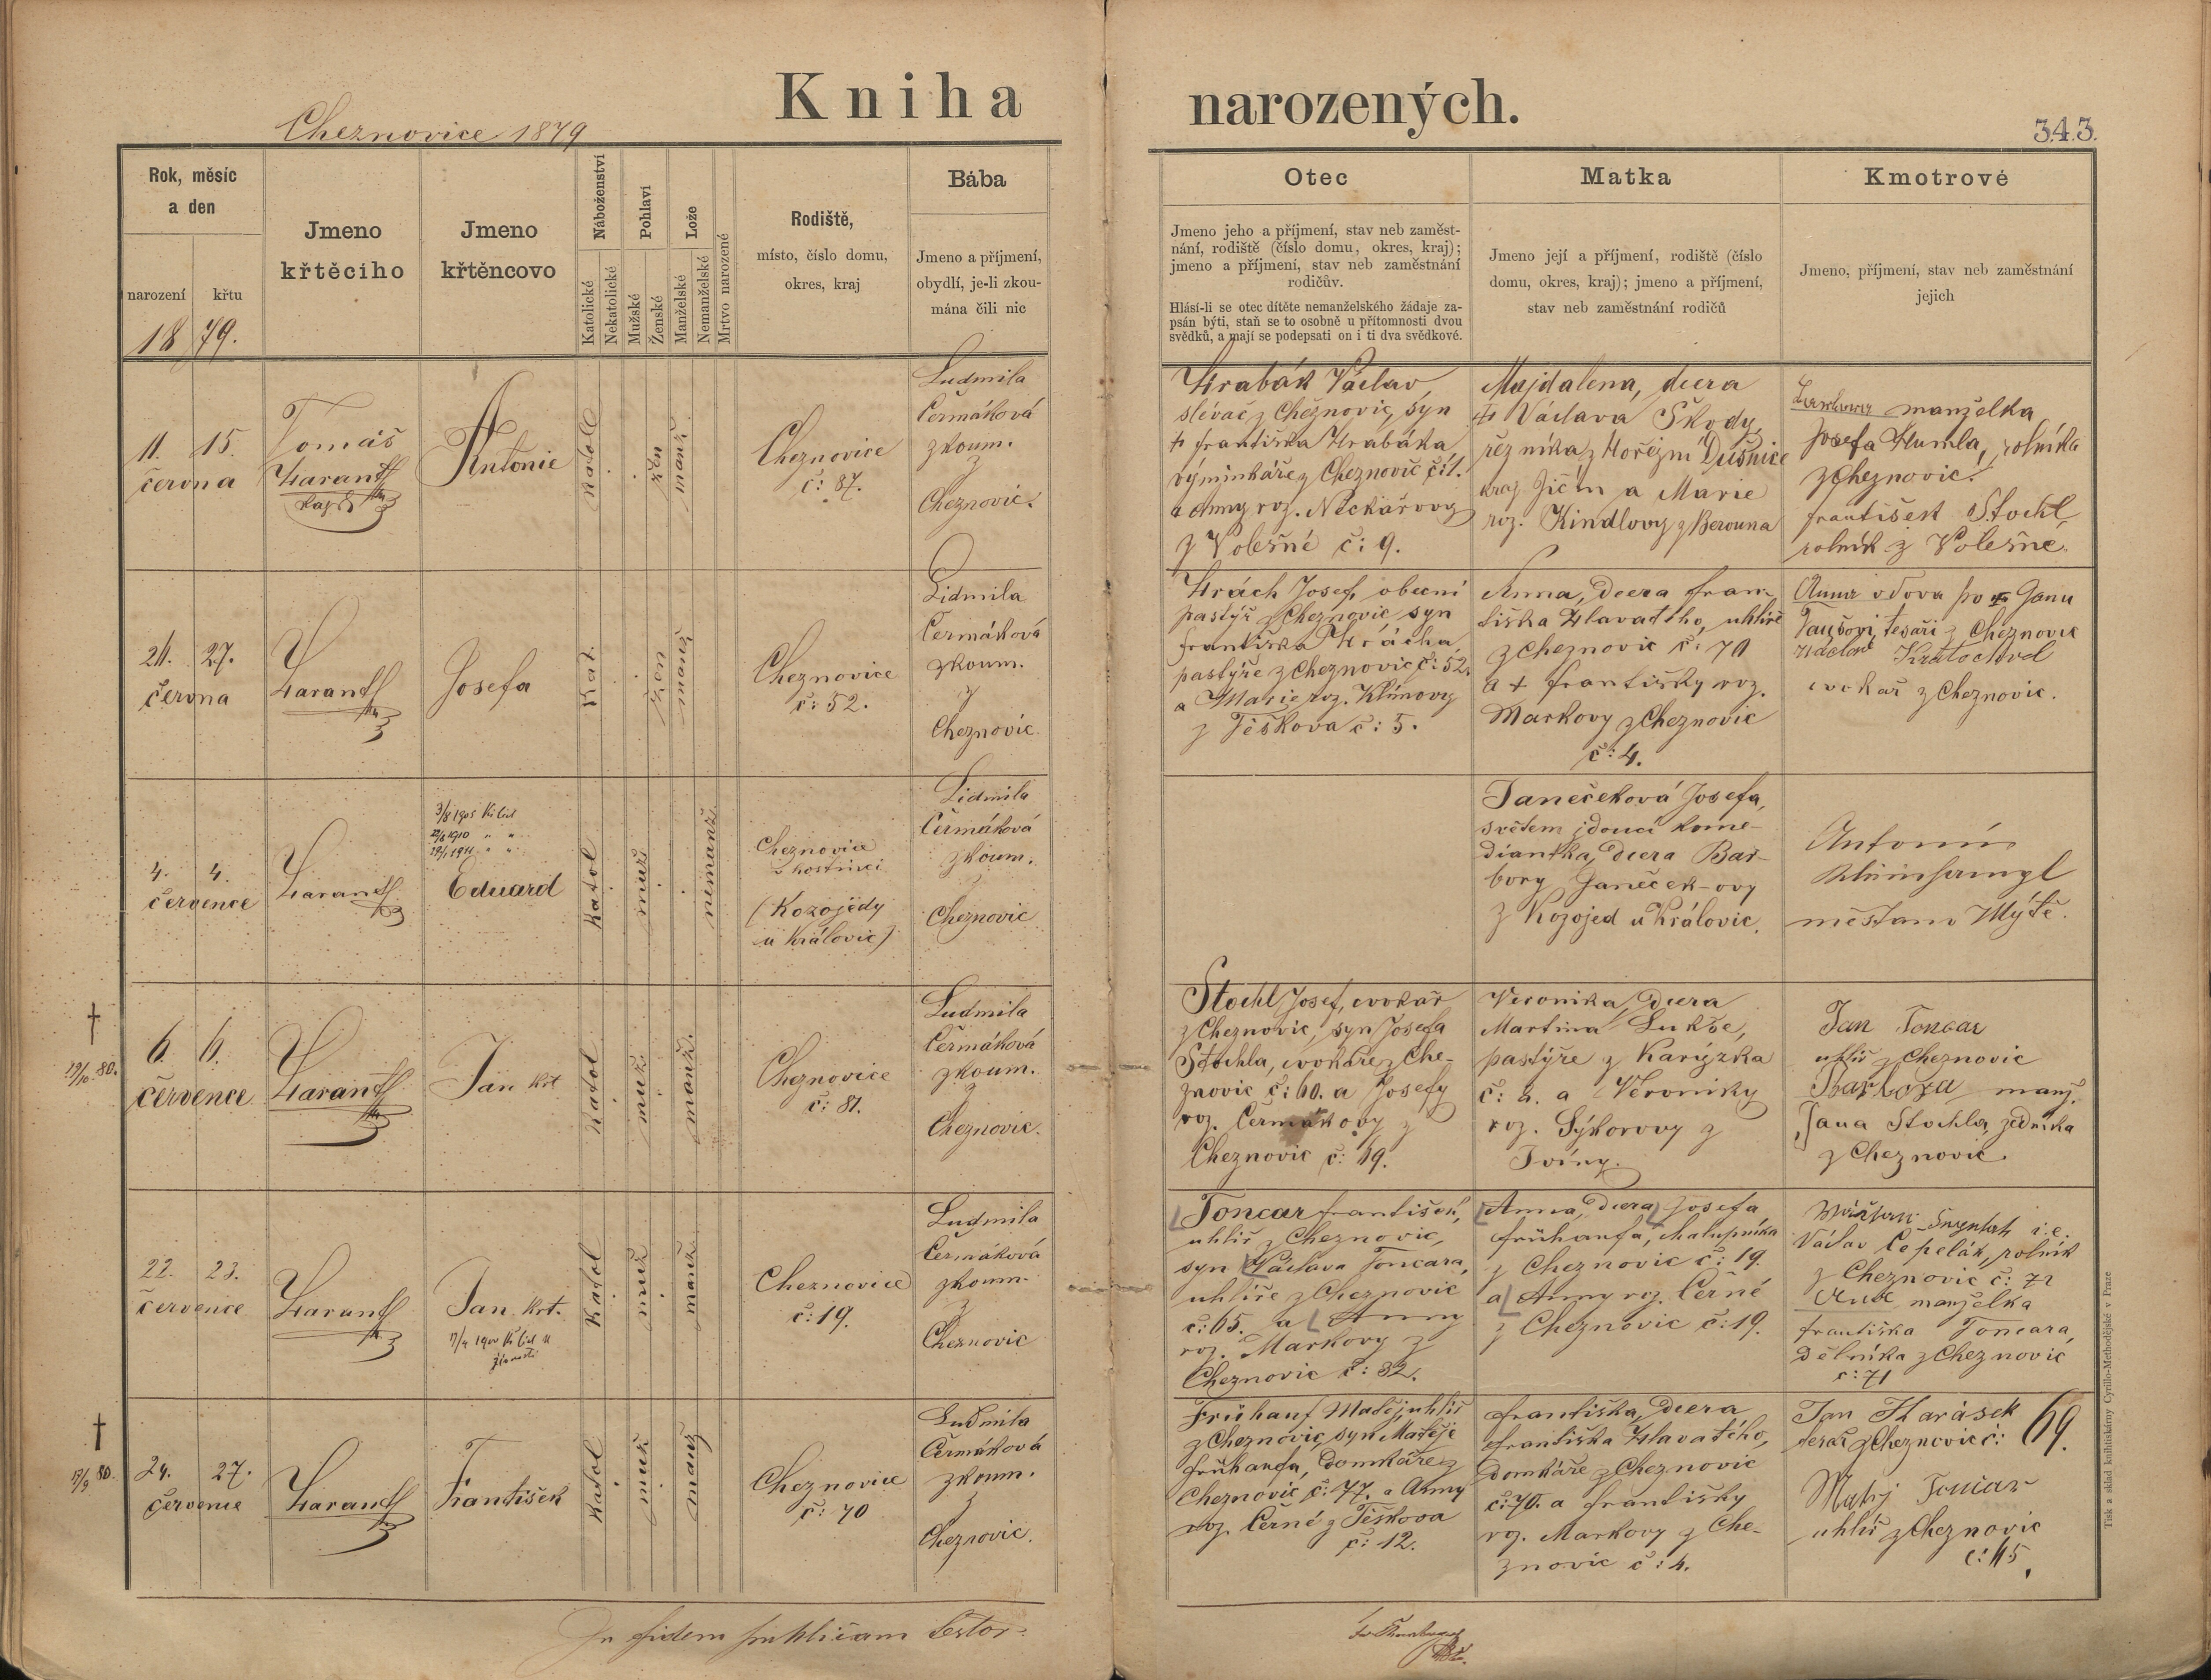 Kniha narozených.
Cheznovice 1879
343.
Rok, měsíc
a den
narození
křtu
18 79.
Jmeno
křtěcího
Jmeno
křtěncovo
Náboženství
Katolické
Nekatolické
Pohlaví
Mužské
Ženské
Lože
Manželské
Nemanželské
Mrtvo narozené
Rodiště,
místo, číslo domu,
okres, kraj
Bába
Jmeno a příjmení,
obydlí, je-li zkou-
mána čili nic
Otec
Jmeno jeho a příjmení, stav neb zaměst-
nání, rodiště (číslo domu, okres, kraj);
jmeno a příjmení, stav neb zaměstnání
rodičův.
Hlásí-li se otec dítěte nemanželského žádaje za-
psán býti, staň se to osobně u přítomnosti dvou
svědků, a mají se podepsati on i ti dva svědkové.
Matka
Jmeno její a příjmení, rodiště (číslo
domu, okres, kraj); jmeno a příjmení,
stav neb zaměstnání rodičů
Kmotrové
Jmeno, příjmení, stav neb zaměstnání
jejich
11. 15.
června
Tomáš
Antonie
katol
žen
manž.
Cheznovice
č: 87.
Ludmila
Čermáková
zkoum.
z
Cheznovic.
Hrabák Václav,
slévač z Cheznovic, syn
† Františka Hrabáka,
výminkáře z Cheznovic č:1.
a Anny roz.
z Volešné č: 9.
Majdalena, dcera
† Václava Škody,
řezníka z Hořejm Dušnic
kraj Jičín a Marie
roz. Kindlovy z Berouna
manželka
Josefa Humla, rolníka
z Cheznovic.
František Stochl,
rolník z Volešné.
21. 27.
června
Josefa
kat.
žen
manž
Cheznovice
č: 52.
Lidmila
Čermáková
zkoum.
z
Cheznovic.
Hrách Josef, obecní
pastýř z Cheznovic syn
Františka Hrácha,
pastýře z Cheznovic č: 52.
a Marie roz. Klímovy
z Těškova č: 5.
Anna, dcera Fran-
tiška Hlavatého, uhlíře
z Cheznovic č: 70
a † Františky roz.
Markovy z Cheznovic
č: 4.
Anna vdova po † Janu
tesaři z Cheznovic
Kratochvíl
cvokař z Cheznovic.
4. 4.
července
Eduard
katol
muž
nemanž.
Cheznovice
v hostinci
(Kozojedy
u Královic)
Lidmila
Čermáková
zkoum.
Cheznovic
Janečeková Josefa,
světem jdoucí kome-
diantka, dcera Bar-
bory Janeček-ovy
z Kozojed u Královic.
Antonín
měšťan v Mýtě.
†
19/10.80.
6. 6.
července
Jan Krt.
katol
muž
manž.
Cheznovice
č: 81.
Ludmila
Čermáková
zkoum.
z
Cheznovic.
Stochl Josef, cvokář
z Cheznovic, syn Josefa
Stochla, cvokáře z Che-
znovic č: 60. a Josefy
roz. Čermákovy z
Cheznovic č: 19.
Veronika, dcera
Martina Lukše,
pastýře z Karýzka
č: 2. a Veroniky
roz. Sýkorovy z
Tvíny.
Jan Toncar
uhlíř z Cheznovic
Barbora manž.
Jana Stochla, zedníka
z Cheznovic.
22. 23.
července
Jan Krt.
katol
muž
manž
Cheznovice
č: 19.
Ludmila
Čermáková
zkoum.
z
Cheznovic
Toncar František,
uhlíř z Cheznovic,
syn Václava Toncara,
uhlíře z Cheznovic
č: 65. a Anny
roz. Markovy z
Cheznovic č: 32.
Anna, dcera Josefa
Frühaufa, chalupníka
z Cheznovic č: 19.
a Anny roz. Černé
z Cheznovic č: 19.
i.e.
Václav Cepelák, rolník
z Cheznovic č: 72
manželka
Františka Toncara,
dělníka z Cheznovic
č: 71
†
17/9 80.
24. 27.
července
František
katol
muž
manž
Cheznovice
č: 70
Ludmila
Čermáková
zkoum.
z
Cheznovic.
Frühauf Matěj, uhlíř
z Cheznovic, syn Matěje
Frühaufa, domkáře z
Cheznovic č: 77. a Anny
roz. Černé z Těškova
č: 12.
Františka, dcera
Františka Hlavatého,
domkáře z Cheznovic
č: 70. a Františky
roz. Markovy z Che-
znovic č: 4.
Jan Harásek
tesař z Cheznovic č: 69.
Matěj Toncar
uhlíř z Cheznovic
In fidem publicam
Tisk a sklad knihtiskárny Cyrillo-Methodějské v Praze